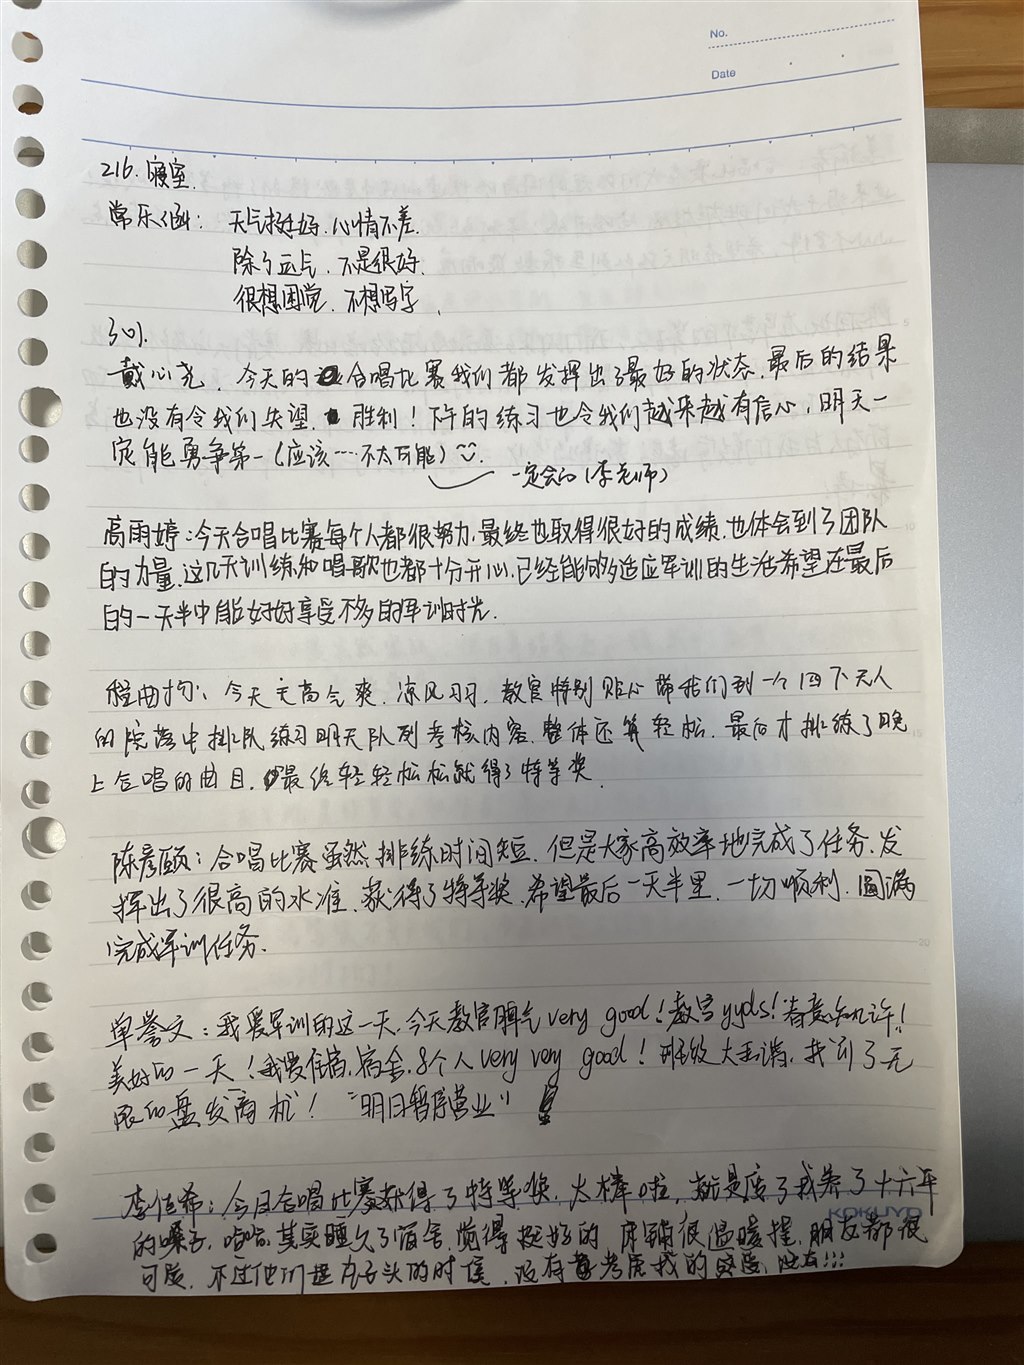 No.
Date
216. 寝室.
常乐涵: 天气挺好. 心情不差.
除了运气. 不是很好.
很想困觉. 不想写字.
301.
戴心尧. 今天的合唱比赛我们都发挥出了最好的状态. 最后的结果
也没有令我们失望. 胜利! 下午的练习也令我们越来越有信心, 明天一
定能勇争第一 (应该……不太可能)
一定会的 (李老师)
高雨婷: 今天合唱比赛每个人都很努力, 最终也取得很好的成绩. 也体会到了团队
的力量. 这几天训练和唱歌也都十分开心. 已经能够适应军训的生活希望在最后
的一天半中能好好享受不多的军训时光.
程曲: 今天天高气爽. 凉风习习. 教官特别贴心带我们到一个四下无人
的院落中排队练习明天队列考核内容. 整体还算轻松. 最后才排练了晚
上合唱的曲目. 最终轻轻松松就得了特等奖
陈彦颐: 合唱比赛虽然排练时间短. 但是大家高效率地完成了任务. 发
挥出了很高的水准. 获得了特等奖. 希望最后一天半里. 一切顺利. 圆满
完成军训任务.
单誉文: 我爱军训的这一天. 今天教官脾气 very good! 教官 yyds! 春意知几许!
美好的一天! 我爱住宿. 宿舍. 8个人 very very good! 班级大和谐. 找到了无
限的盘发商机! “明日暂停营业”
李佳希: 今日合唱比赛获得了特等奖. 太棒啦, 就是废了我养了十六年
的嗓子. 哈哈. 其实睡久了宿舍. 觉得挺好的. 床铺很温暖捏. 朋友都很
可爱. 不过他们提丸子头的时候, 没有考虑我的感受, 没有!!!
KOKUYO